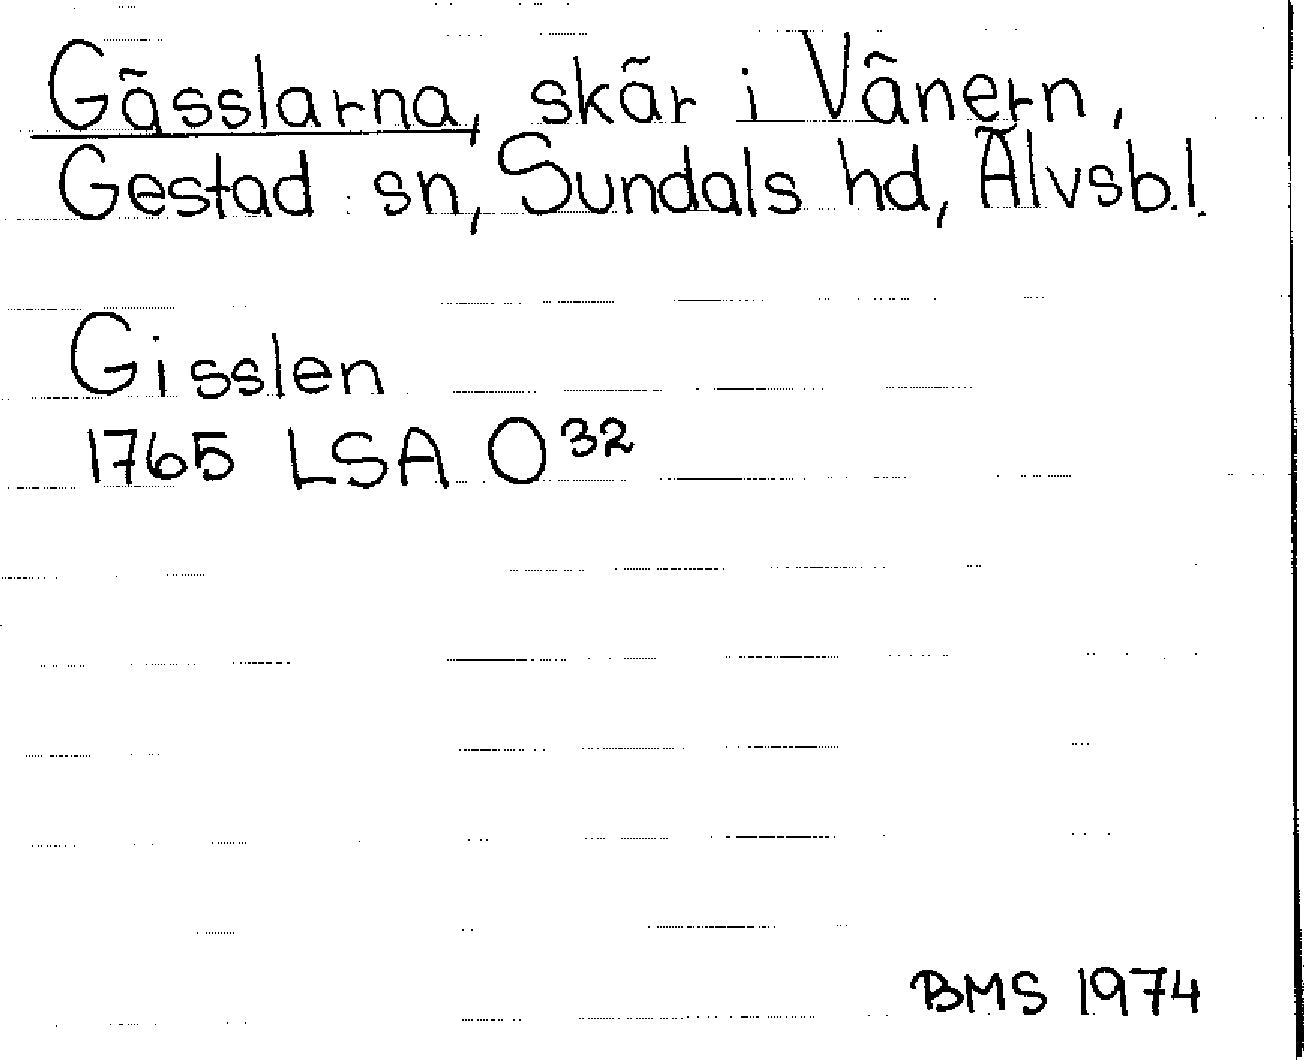 Gässlarna, skär i Vänern,
Gestad sn, Sundals hd, Älvsb.l.
Gisslen
1765 LSA O32
BMS 1974